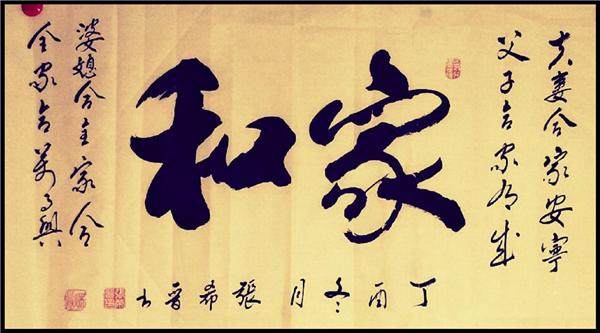 夫妻合家安寧
父子合家成
家和
婆媳合主家合
全家合萬事興
丁酉冬月張希晉书